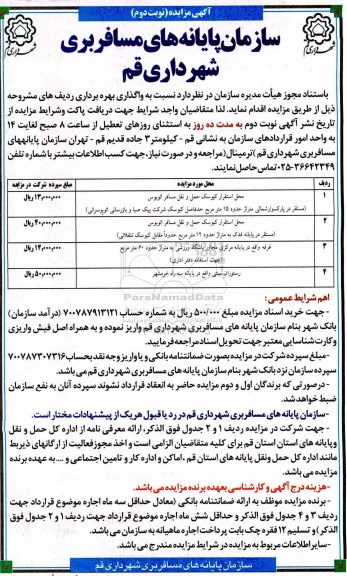 آگهی مزایده (نوبت دوم)
سازمان پایانه های مسافربری
شهرداری قم
باستناد مجوز هیأت مدیره سازمان در نظر دارد نسبت به واگذاری بهره برداری ردیف های مشروحه
ذیل از طریق مزایده اقدام نماید. لذا متقاضیان واجد شرایط جهت دریافت پاکت وشرایط مزایده از
تاریخ نشر آگهی نوبت دوم به مدت ده روز به استثنای روزهای تعطیل از ساعت ۸ صبح لغایت ۱۴
به واحد امور قراردادهای سازمان به نشانی قم - کیلومتر۳ جاده قدیم قم - تهران سازمان پایانههای
مسافربری شهرداری قم (ترمینال)مراجعه و در صورت نیاز، جهت کسب اطلاعات بیشتر با شماره تلفن
۳۶۶۴۲۳۴۹-۰۲۵ تماس حاصل نمایند.
ردیف محل مورد مزایده مبلغ سپرده شرکت در مزایده
۱ محل استقرار کیوسک حمل و نقل مسافر اتوبوس ۱۳,۰۰۰,۰۰۰ ریال
۲ محل استقرار کیوسک حمل و نقل مسافر اتوبوس
(مستقر در پایانه فدک به متراژ حدود ۱۲ متر مربع حدودا مقابل کیوسک تنقلاتی)
۳ غرفه واقع در پایانه مرکزی مجاور باشگاه ورزشی به متراژ حدود ۶۰ متر مربع
(جهت استفاده دفتر اداری)
۴ رستوران سیتی واقع در پایانه سه راه خرمشهر ۵۰,۰۰۰,۰۰۰ ریال
ParsNamadData
اهم شرایط عمومی:
-جهت خرید اسناد مزایده مبلغ ۵۰۰/۰۰۰ ریال به شماره حساب ۷۰۰۷۸۷۹۱۳۱۲۱ (درآمد سازمان)
بانک شهر بنام سازمان پایانه های مسافربری شهرداری قم واریز نموده و به همراه اصل فیش واریزی
و کارت شناسایی معتبر جهت تحویل اسناد مراجعه فرمایید.
-مبلغ سپرده شرکت در مزایده بصورت ضمانتنامه بانکی و یا واریز وجه نقد بحساب ۷۰۰۷۸۷۳۰۷۳۱۶
سپرده سازمان نزد بانک شهر بنام سازمان پایانه های مسافربری شهرداری قم می باشد.
-درصورتی که برندگان اول و دوم مزایده حاضر به انعقاد قرارداد نشوند سپرده آنان به نفع سازمان
ضبط خواهد شد.
-سازمان پایانه های مسافربری شهرداری قم در رد یا قبول هر یک از پیشنهادات مختار است.
-جهت شرکت در مزایده ردیف ۱ و ۲ جدول فوق الذکر، ارائه معرفی نامه از اداره کل حمل و نقل
وپایانه های استان استان قم برای کلیه متقاضیان الزامی است و اخذ مجوز فعالیت از ارگانهای ذیربط
مانند اداره کل حمل ونقل پایانه های استان قم ، اماکن و اداره کار و تامین اجتماعی و .... به عهده برنده
مزایده می باشد.
-هزینه درج آگهی و کارشناسی بعهده برنده مزایده می باشد.
-برنده مزایده موظف به ارائه ضمانتنامه بانکی (معادل حداقل سه ماه اجاره موضوع قرارداد جهت
ردیف ۳ و ۴ جدول فوق الذکر و حداقل شش ماه اجاره موضوع قرارداد جهت ردیف ۱ و ۲ جدول فوق
الذکر) و تسلیم ۱۲ فقره چک بابت پرداخت اجاره ماهیانه به سازمان می باشد.
-سایر اطلاعات مربوط به مزایده در شرایط مزایده مندرج می باشد.
سازمان پایانه های مسافربری شهرداری قم